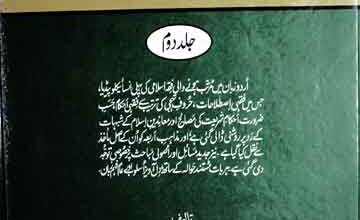 جلد دوم
اُردو زبان میں مرتب ہونے والی فقہ اسلامی کی پہلی انسائیکلوپیڈیا،
جس میں فقہی اصطلاحات، حروف تہجی کی ترتیب سے فقہی احکام، حسب
ضرورت احکام شریعت کی مصالح اور معاندین اسلام کے شبہات
کے رد پر روشنی ڈالی گئی ہے اور مذاہب اربعہ کو ان کے اصل مآخذ
سے نقل کیا گیا ہے، نیز جدید مسائل اور اصولی مباحث پر خصوصی توجہ
دی گئی ہے، ہر بات مستند حوالہ کے ساتھ، دل آویز اسلوب، عام فہم زبان۔